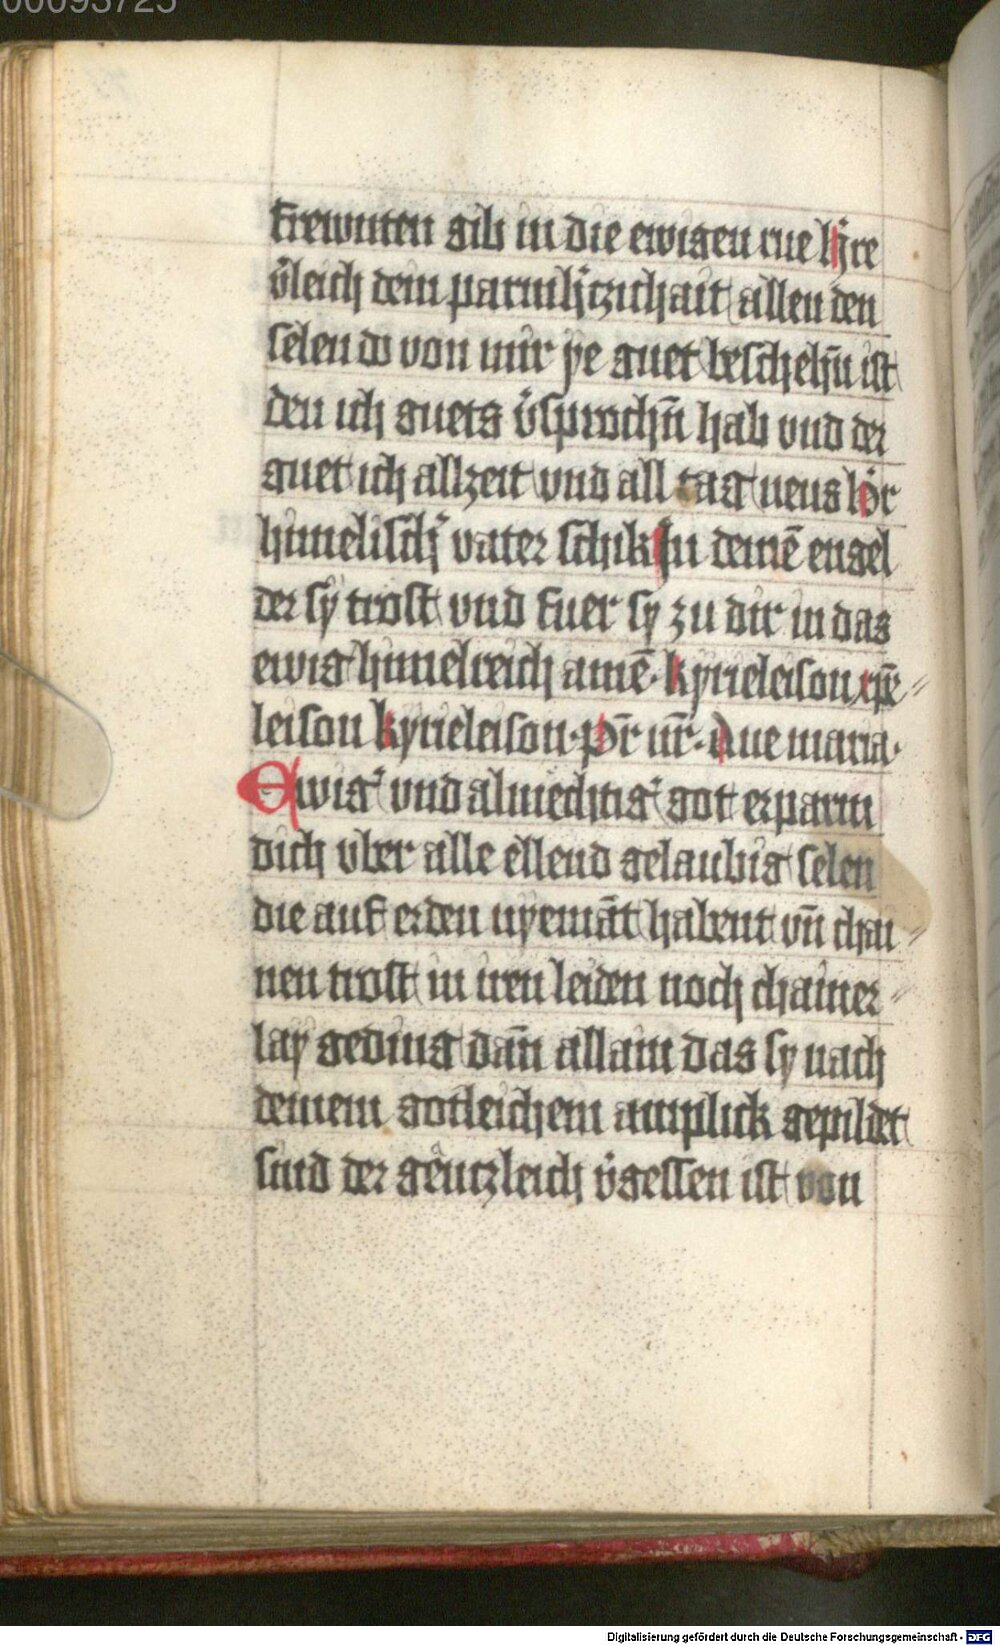 00093725
frewnten gib in die ewigen rue h̾re
v̾leich dein parmh̾tzichait allen den
selen do von mir ye guet beschehn̄ ist
den ich guets v̾sprochn̄ hab vnd der
guet ich allzeit vnd all tag neus hör
himelisch̾ vater schik In deinē engel
der sÿ trost vnd fuer sy zu dir in das
ewig himelreich amē· kyrieleison xpē
leison kyrieleison· pr̄ nr̄· Aue maria·
Ewig̾ vnd almechtig̾ got erparm
dich vber alle ellend gelaubig selen
die auf erden nyemāt habent vn̄ chai
nen trost in iren leiden noch chainer
lay geding dan̄ allain das sy nach
deinem gotleichem anplick gepildet
sind der gëntzleich v̾gessen ist von
Digitalisierung gefördert durch die Deutsche Forschungsgemeinschaft - DFG